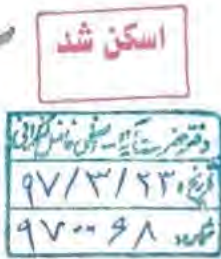 اسکن شد
دفتر حضرت آیة ... فاضل لنکرانی
تاریخ: ۹۷/۳/۲۳
شماره: ۹۷۰۰۶۸